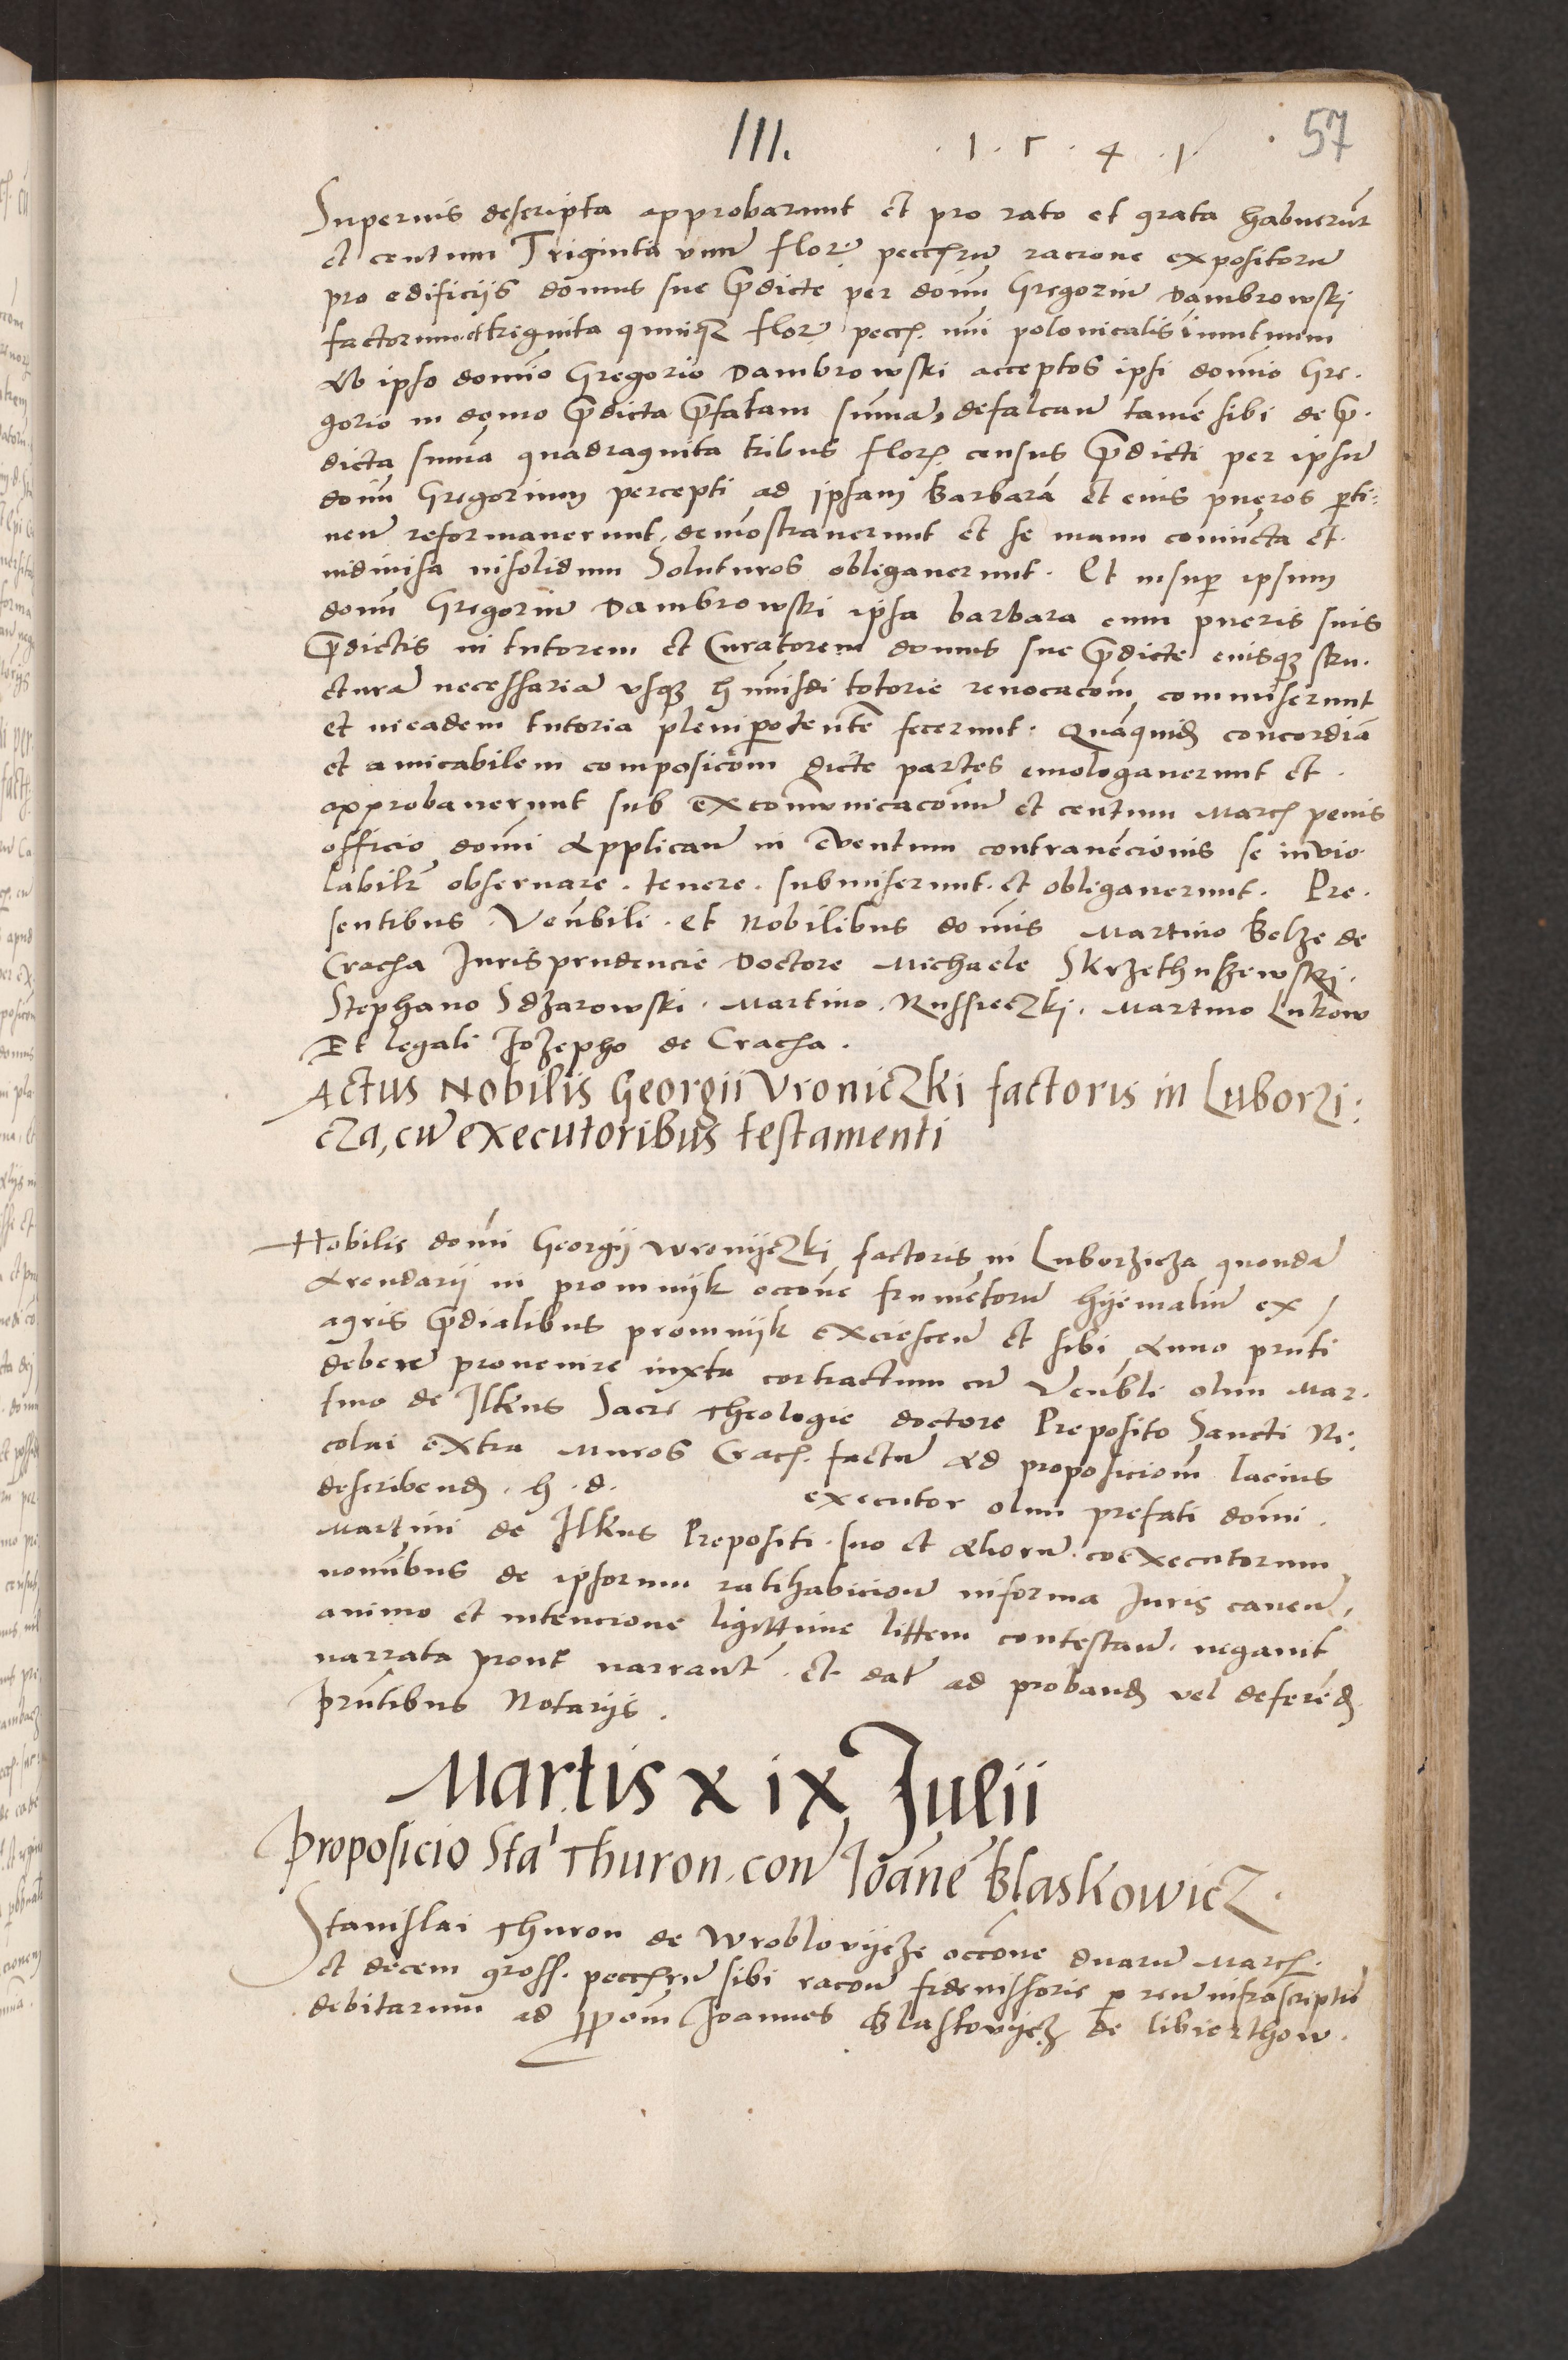 III. . 1 . 5 . 4 . 1 . 57
Superius descripta approbarunt et pro rato et grata habuerūt
et centum Triginta unū florꝭ peccꝭrū racione expositorū
pro edificijs domus sue p̄dicte per dom̄ Gregoriū Dambrowskj
factorum et triginta quinqꝫ florꝭ peccꝭ nūi polonicalis inmutuum
Ab ipso domīo Gregorio Dambrowski acceptos ipsi domīo Gre.
gorio in domo p̄dicta p̄fatam sum̄am, defalcan̄ tamē sibi de p̄.
dicta sum̄a quadraginta tribus florꝭ census p̄dicti per ipsū
dom̄ Gregorium percepti ad jpsam Barbarā et eius pueros p̲ti:
nen̄ reformauerunt, demōstrauerunt et se manu coniūcta et
indiuisa insolidum Soluturos obligauerunt. Et insup̲ ipsum
dom̄ Gregoriū Dambrowski ipsa barbara cum pueris suis
p̄dictis in tutorem et Curatorem domus sue p̄dicte eiusqꝫ stru.
cturā necessariā vsqꝫ h̄mōi totorie reuocacōm̄ commiserunt
et in eadem tutoria plenipotentē fecerunt. Quāquidꝭ concordiā
et amicabilem composicōm̄ dicte partes emologauerunt et .
approbauerunt sub excōm̄unicacōnū et centum Marcꝭ penis
officio domī Applican̄ in Euentum contrauēcionis se invio
labilr̄ obseruare . tenere . submiserunt . et obligauerunt . Pre .
sentibus . Ven̄bili . et Nobilibus domīs Martino Belze de
Cracꝭa Jurisprudencie Doctore Michaele Skrzethuszewskj .
Stephano Sdzarowski . Martino . Russieczkj . Martino Lukow
Et legali Jozepho de Cracꝭa .
Actus Nobilis Georgii Vroniczki factoris in Luborzi:
cza, cū executoribus testamenti
Nobilis domī Georgij Wronijeczkj factoris in Luborzicza quondā
Arendarij in promnijk occōne frumētorū hyemaliū ex
agris p̄dialibus promnijk excrescen̄ et sibi Anno pr̄nti
debere prouenire iuxta cortractum cū Ven̄bli olim Mar .
tino de Ilkus Sacre Theologie doctore Preposito Sancti Ni:
colai extra Muros Cracꝭ . factū Ad proposiciom̄ lacius
describendꝭ . h . d . executor olim prefati domī .
Martini de Ilkus Prepositi . suo et Aliorū . coexecutorum
nomībus de ipsorum ratihabicione informa Juris cauen̄,
animo et intencione ligittime littem contestan̄ . negauit
narrata prout narrant̄ . et dat̄ ad probandꝭ vel deferēdꝭ
pr̄ntibus Notarijs .
Martis x ix Julii
Proposicio Sta' Thuron . con̄ Joānē Blaskowicz .
Stanislai Thuron de Wroblovijcze occōne duarū Marcꝭ .
et decem gross . peccꝭrū sibi racōne fideiussorie p̲ reū infrascriptū
debitarum ad p̲pom̄ Joannes Blaskovijcz de libierthow .